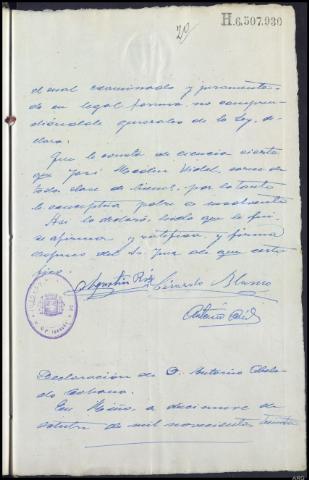 H.6.507.930
29
el cual examinado y juramenta-
do en legal forma, no compren-
diéndole generales de la Ley, de-
clara.
Que le consta de ciencia cierta
que José Vidal, carece de
toda clase de bienes, por lo tanto
le conceptúa pobre e insolvente
Así lo declaró, leido que le fué
se afirma y ratifica, y firma
despues del Sr. Juez de que certi-
fico.
Agustin Gerardo Blanco
Antonio
Declaración de D. Antonio
do
En Miño, a diecinueve de
octubre de mil novecientos treinta